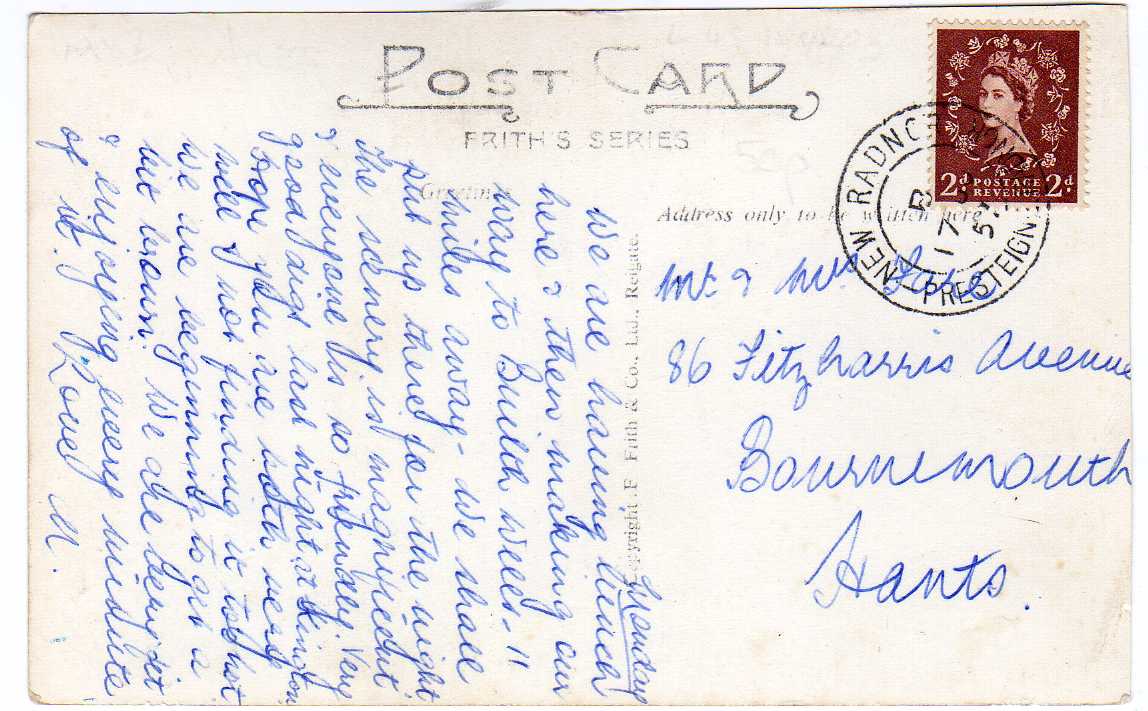 POST CARD
FRITH'S SERIES
Greetings
Address only to be written here
2d POSTAGE REVENUE 2d
NEW RADNOR PRESTEIGNE
17
5
Copyright. F. Frith & Co., Ltd., Reigate.
Monday
We are having lunch
here & then making our
way to Builth Wells - 11
miles away - we shall
put up there for the night
The scenery is magnificent
& everyone is so friendly. Very
good digs last night at Kington
Hope you are both very
well & not finding it too hot
We are beginning to get a
bit brown. We are
& enjoying every minute
of it. Love M.
Mr. & Mrs
86 Fitzharris Avenue
Bournemouth
Hants.